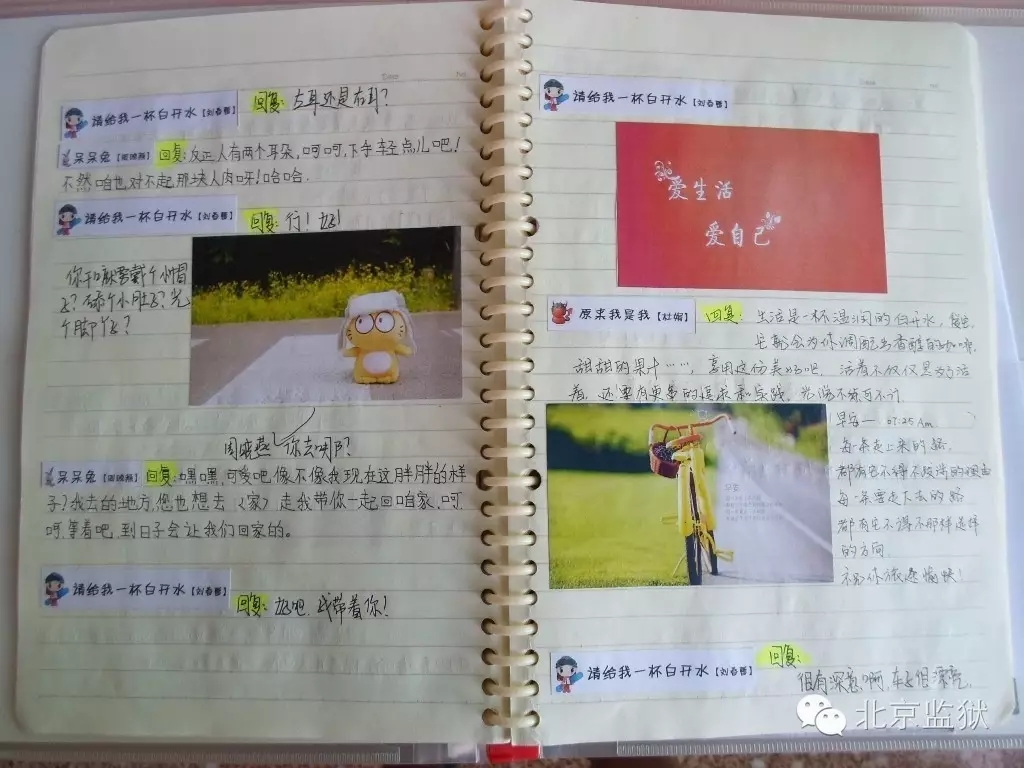 请给我一杯白开水【刘春香】 回复: 左耳还是右耳?
呆呆兔 回复: 反正人有两个耳朵,呵呵,下手轻点儿吧!
不然咱也对不起那块人肉呀!哈哈.
请给我一杯白开水【刘春香】 回复: 行! 好!
你干嘛要戴个小帽
个脚丫?
周晓燕 你去哪?
呆呆兔 回复: 嘿嘿,可爱吧,像不像我现在这胖胖的样
子?我去的地方,您也想去《家》走我带你一起回咱家,呵
呵,等着吧,到日子会让我们回家的。
请给我一杯白开水【刘春香】 回复: 好吧.我带着你!
请给我一杯白开水【刘春香】
爱生活
爱自己
原来我是我 回复: 生活是一杯温润的白开水,
它都会为你调配出香醇的咖啡,
甜甜的果汁……,享用这份美好吧.活着不仅仅是为了活
着,还要有更多的追求和实践,
早安— 07:25 Am.
每一条走上来的路
都有它不得不跋涉的理由
每一条要走下去的路
都有它不得不那样选择
的方向.
祝你旅途愉快!
早安
请给我一杯白开水【刘春香】 回复:
很有深意啊,车也很漂亮.
北京监狱